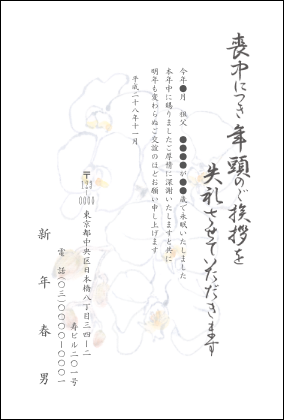 喪中につき年頭のご挨拶を
失礼させていただきます
今年●月 祖父 ●●●●が●●歳で永眠いたしました
本年中に賜りましたご厚情に深謝いたしますと共に
明年も変わらぬご交誼のほどお願い申し上げます
平成二十八年十一月
〒123
0000
東京都中央区日本橋八丁目三四ー二
寿ビル二〇一号
電話(〇三)〇〇〇〇ー〇〇〇一
新年春男